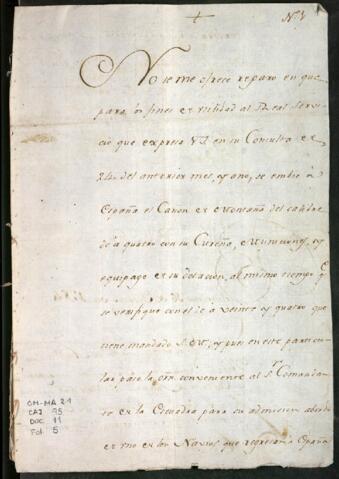 N.º 5
No se me ofrece reparo en que
para los fines de utilidad al Real Servi-
cio que expresa VS en su Consulta de
24 del anterior mes, y año, se embie á
España el Cañon de Montaña del calibre
de á quatro con su Cureña, Municiones, y
equipage de su dotacion, al mismo tiempo q.e
se verifique con el de á veinte, y quatro que
tiene mandado S.M., y pues en este particu-
lar paso la orn. conveniente al S.r Comandan-
te de la Escuadra para su admision abordo
de uno de los Navios que regresan á España
GM-MA 21
CAJ 95
DOC 11
Fol. 5